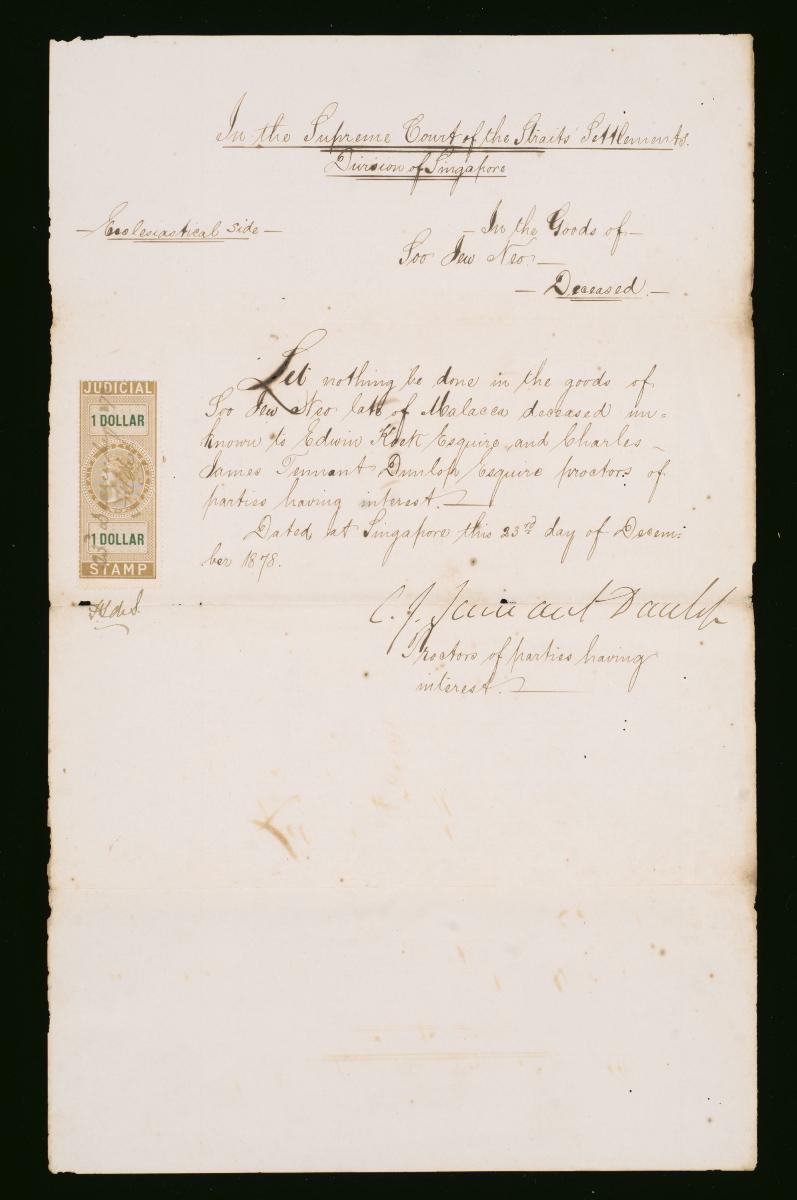 In the Supreme Court of the Straits Settlements.
Division of Singapore
— Ecclesiastical Side —
— In the Goods of —
Soo Jew Neo —
— Deceased. —
Let nothing be done in the goods of
Soo Jew Neo late of Malacca deceased un=
known to Edwin Koek Esquire and Charles —
James Tennant Dunlop Esquire proctors of
parties having interest. —
Dated at Singapore this 23rd day of Decem=
ber 1878.
C. J. Tennant Dunlop
Proctors of parties having
interest. —
JUDICIAL
1 DOLLAR
1 DOLLAR
STAMP